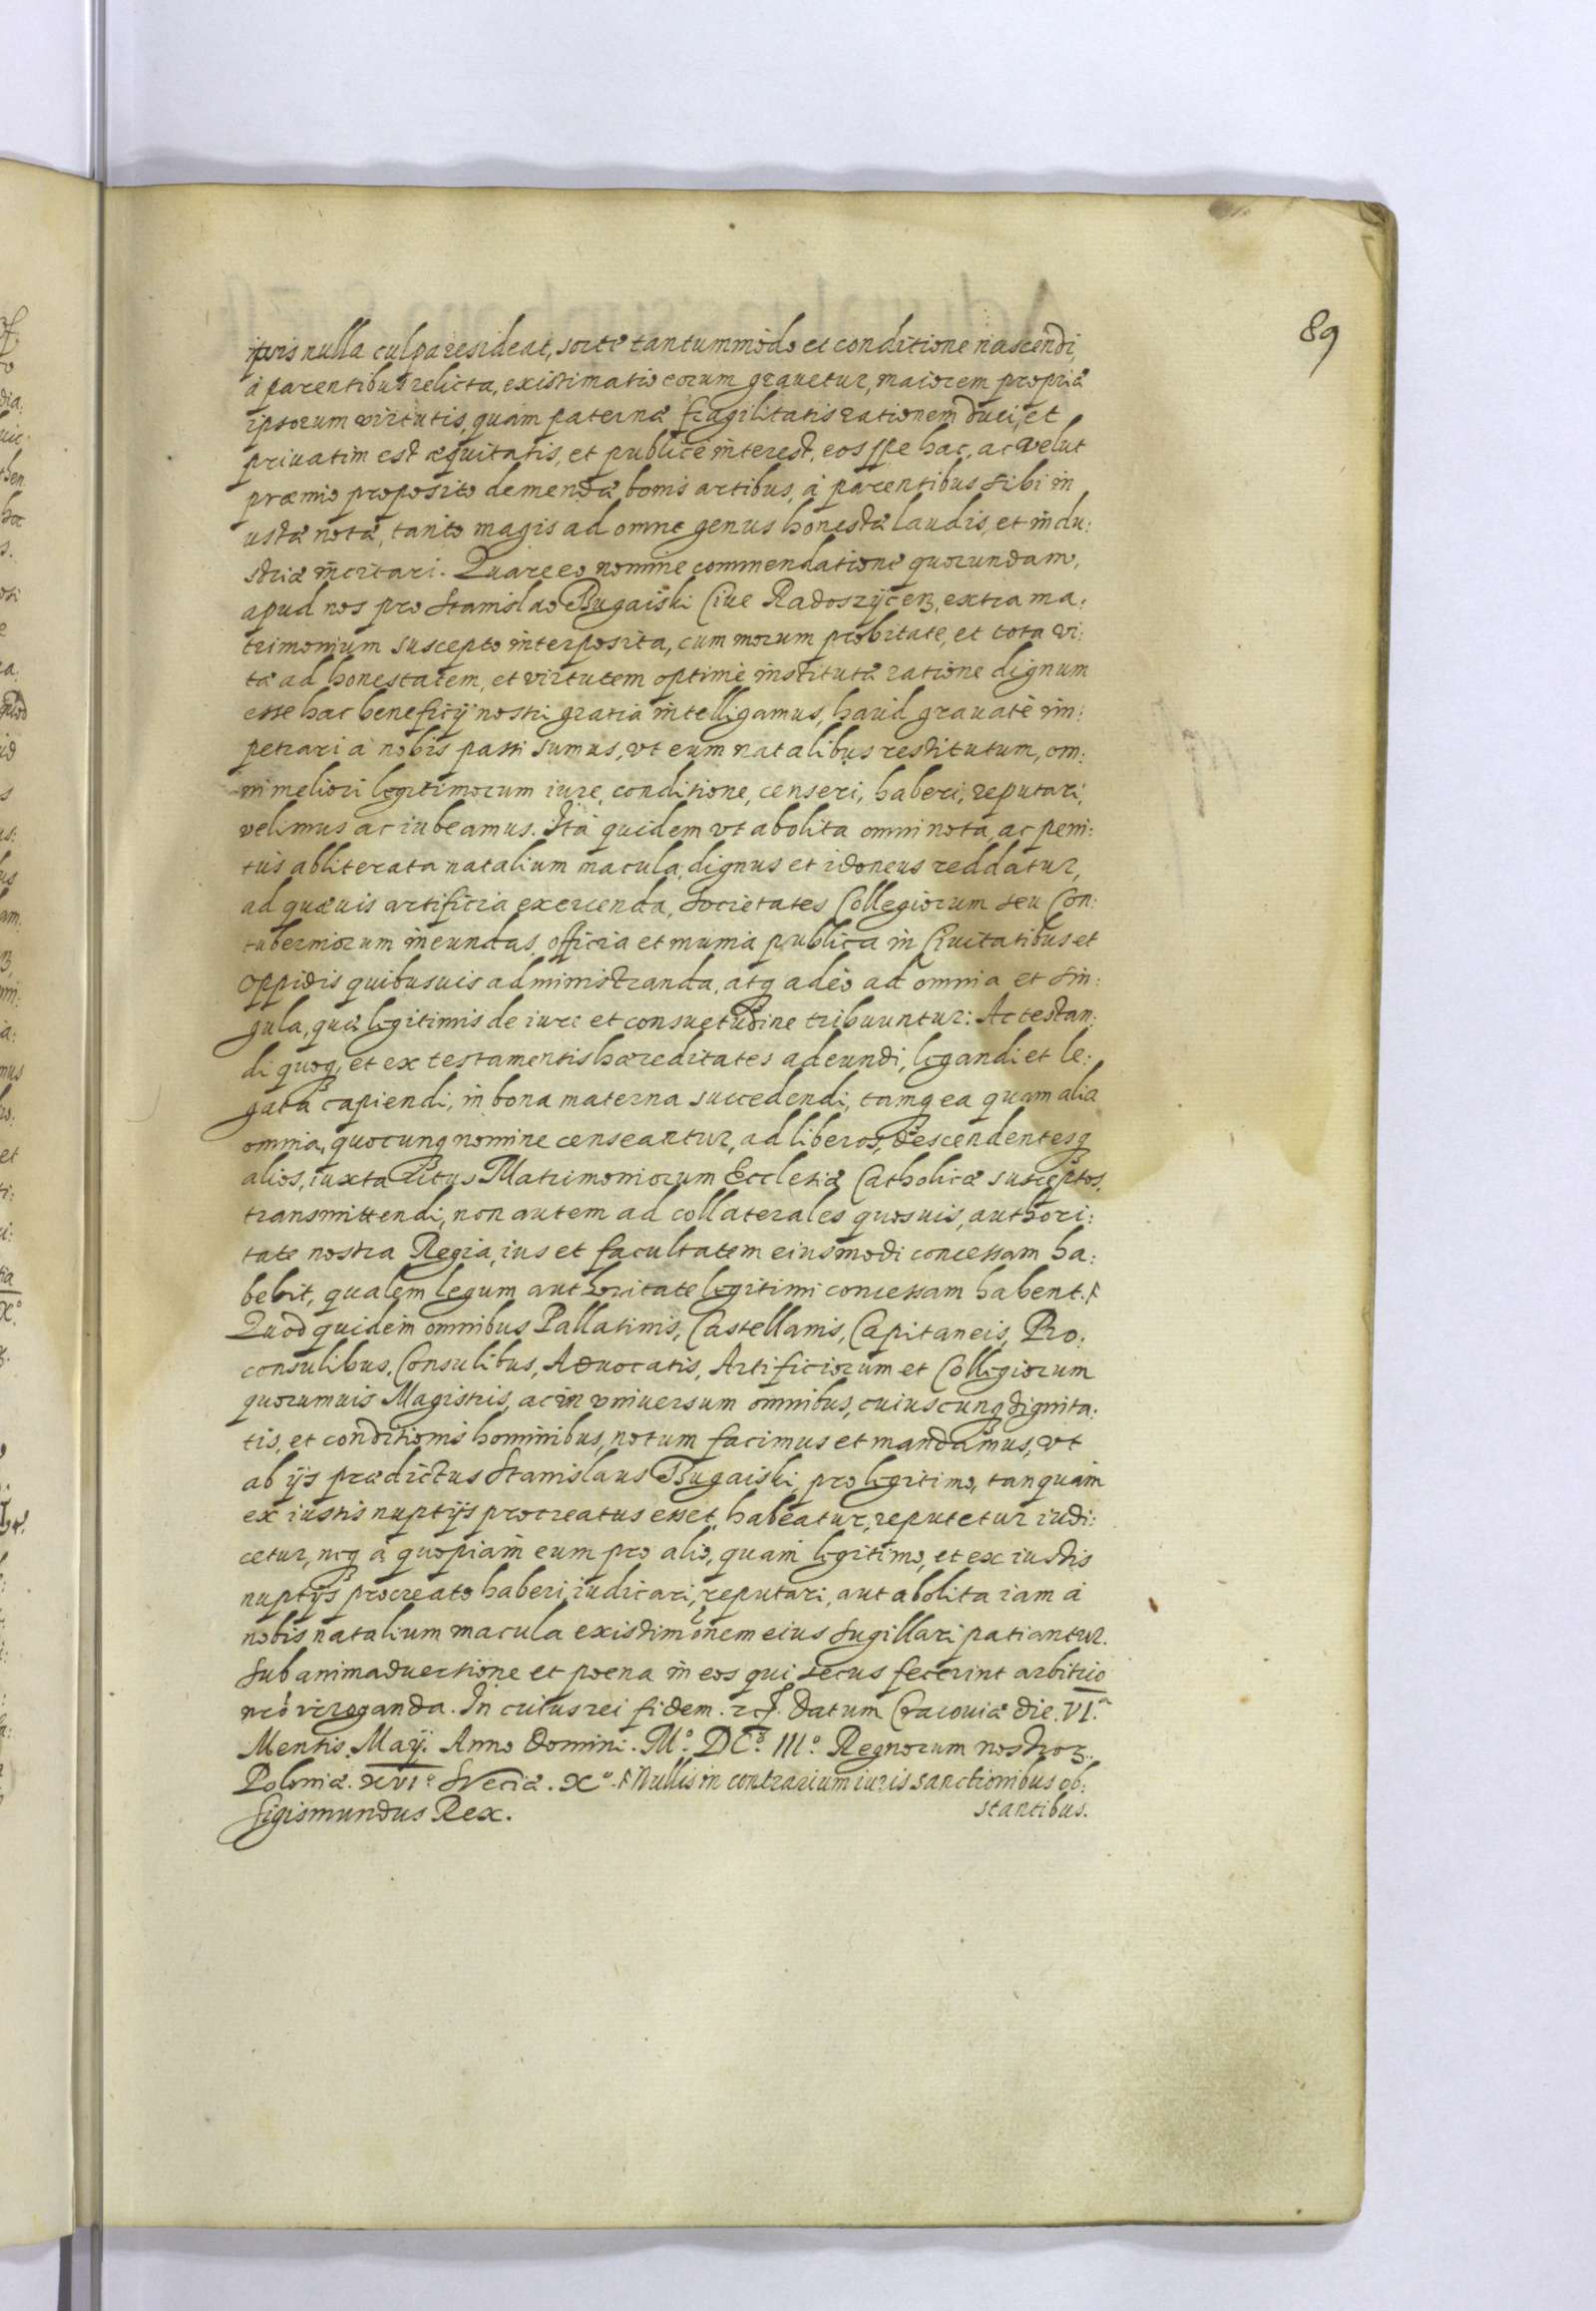 89
ipsis nulla culpa resideat, sorte tantummodo et conditione nascendi,
à parentibus relicta, existimatio eorum grauetur, maiorem propriæ
ipsorum virtutis, quam paternæ fragilitatis rationem duci, et
priuatim est æquitatis, et publice interest, eos spe hac, ac velut
præmio proposito demendæ bonis artibus, à parentibus sibi in
ustæ notæ, tanto magis ad omne genus honestæ laudis, et indu:
striæ incitari. Quare eo nomine commendatione quorundam,
apud nos pro Stanislao Bugaiski Ciue Radoszÿcen, extra ma:
trimonium suscepto interposita, cum morum probitate, et tota vi:
tæ ad honestatem, et virtutem optimè institutæ ratione dignum
esse hac beneficÿ nostri gratia intelligamus, haud grauatè im:
petrari à nobis passi sumus, vt eum natalibus restitutum, om:
ni meliori legitimorum iure, conditione, censeri, haberi, reputari,
velimus ac iubeamus. Ità quidem vt abolita omni nota, ac peni:
tùs abliterata natalium macula, dignus et idoneus reddatur,
ad quæuis artificia exercenda, Societates Collegiorum seu Con:
tuberniorum ineundas, officia et munia publica in Ciuitatibus et
Oppidis quibusuis administranda, atq adeò ad omnia et sin:
gula, quæ legitimis de iure et consuetudine tribuuntur: Ac testan:
di quoq, et ex testamentis hæreditates adeundi, legandi et le:
gata capiendi, in bona materna succedendi, tamq ea quam alia
omnia, quocunq nomine censeantur, ad liberos, descendentesq
alios, iuxta ritus Matrimoniorum Ecclesiæ Catholicæ susceptos,
transmittendi, non autem ad collaterales quosuis, authori:
tate nostra Regia, ius et facultatem eiusmodi concessam ha:
bebit, qualem legum authoritate legitimi concessam habent.
Quod quidem omnibus Pallatinis, Castellanis, Capitaneis, Pro:
consulibus, Consulibus, Aduocatis, Artificiorum et Collegiorum
quorumuis Magistris, ac in vniuersum omnibus, cuiuscunq dignita:
tis, et conditionis hominibus, notum facimus et mandamus, vt
ab ijs prædictus Stanislaus Bugaiski, pro legitimo, tanquam
ex iustis nuptijs procreatus esset, habeatur, reputetur iudi:
cetur, neq à quopiam eum pro alio, quam legitimo, et ex iustis
nuptijs procreato haberi, iudicari, reputari, aut abolita iam à
nobis natalium macula existimonem eius sugillari patiantur.
Sub animaduersione et poena in eos qui secus fecerint arbitrio
nrô irroganda. In cuius rei fidem. Datum Cracouiæ die. VI.ª
Mensis. Maÿ. Anno Domini. M.º DC.º III.º Regnorum nostror.
Poloniæ. XVIº Sveciæ. Xº. Nullis in contrarium iuris sanctionibus ob:
stantibus.
Sigismundus Rex.